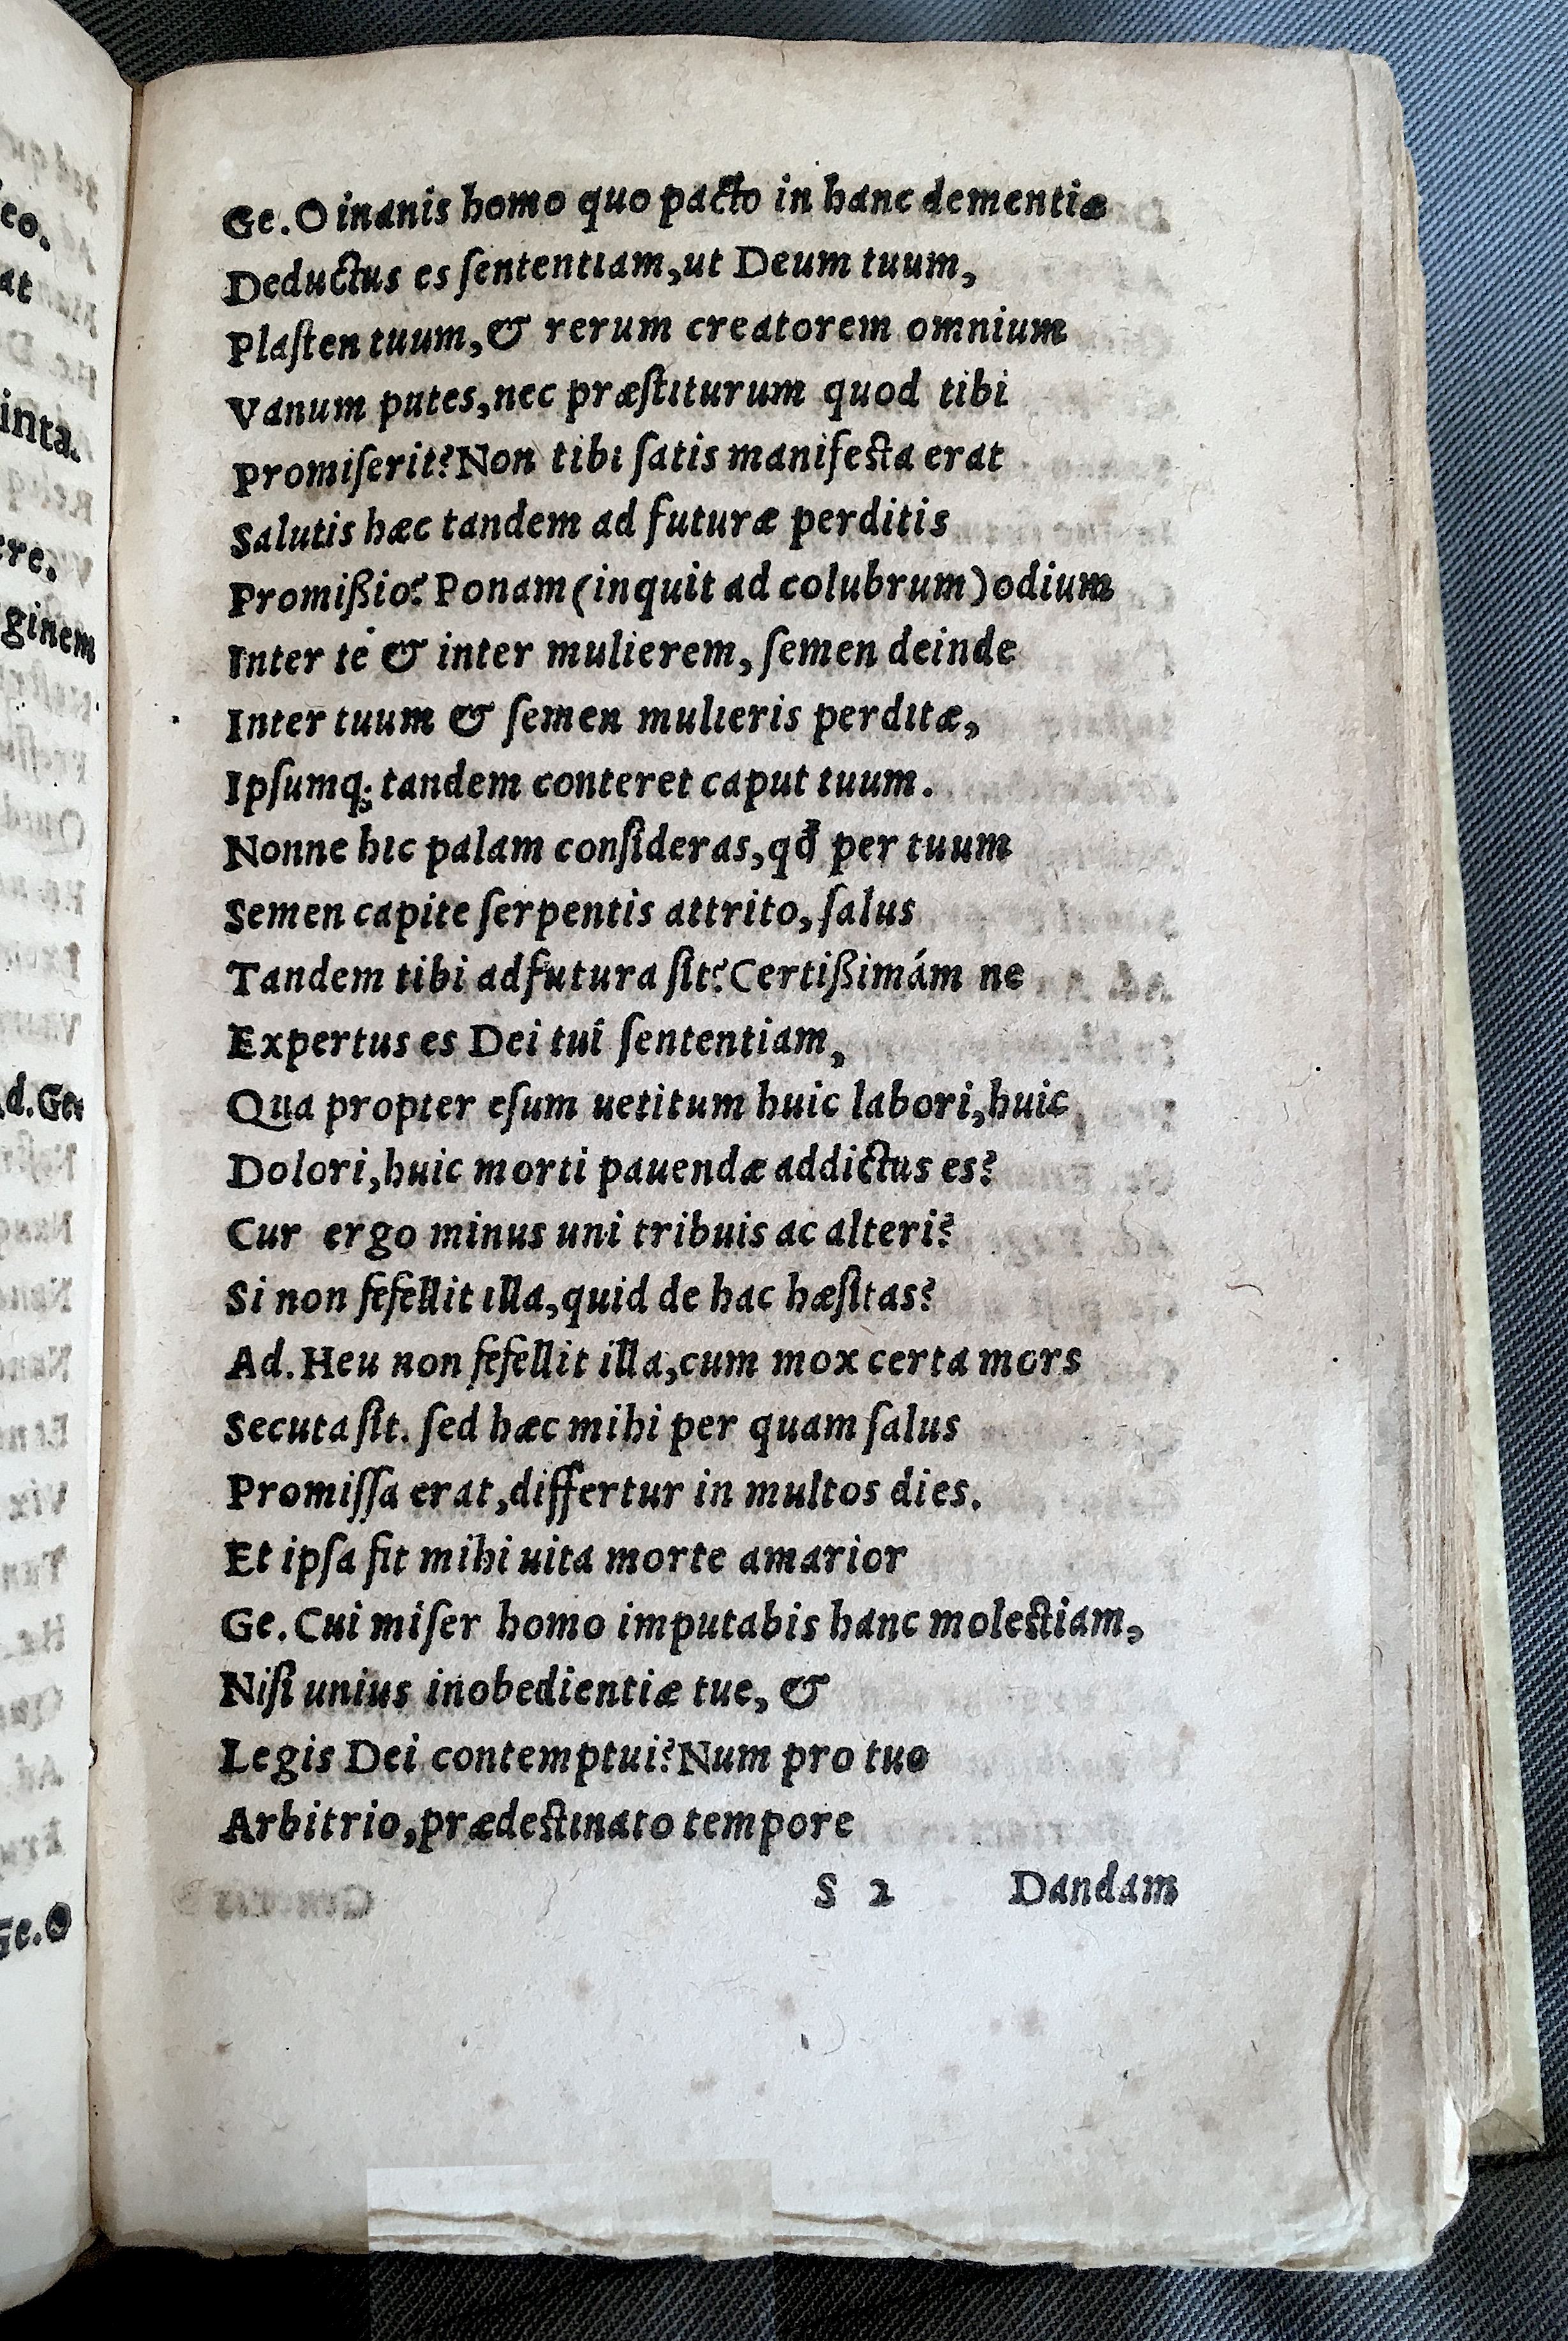 Ge. O inanis homo quo pacto in hanc dementiæ
Deductus es ſententiam, ut Deum tuum,
Plaſten tuum, & rerum creatorem omnium
Vanum putes, nec præſtiturum quod tibi
Promiſerit? Non tibi ſatis manifeſta erat
Salutis hæc tandem ad futuræ perditis
Promißio? Ponam (inquit ad colubrum) odium
Inter te & inter mulierem, ſemen deinde
Inter tuum & ſemen mulieris perditæ,
Ipſumq; tandem conteret caput tuum.
Nonne hic palam conſideras, qd̃ per tuum
Semen capite ſerpentis attrito, ſalus
Tandem tibi adfutura ſit? Certißimám ne
Expertus es Dei tui ſententiam,
Qua propter eſum uetitum huic labori, huic
Dolori, huic morti pauendæ addictus es?
Cur ergo minus uni tribuis ac alteri?
Si non fefellit illa, quid de hac hæſitas?
Ad. Heu non fefellit illa, cum mox certa mors
Secuta ſit. ſed hæc mihi per quam ſalus
Promiſſa erat, differtur in multos dies.
Et ipſa fit mihi uita morte amarior
Ge. Cui miſer homo imputabis hanc moleſtiam,
Niſi unius inobedientiæ tue, &
Legis Dei contemptui? Num pro tuo
Arbitrio, prædeſtinato tempore
S 2 Dandam
eo.
at
inta.
ere.
ginem
Ad. Ge.
Ge. O